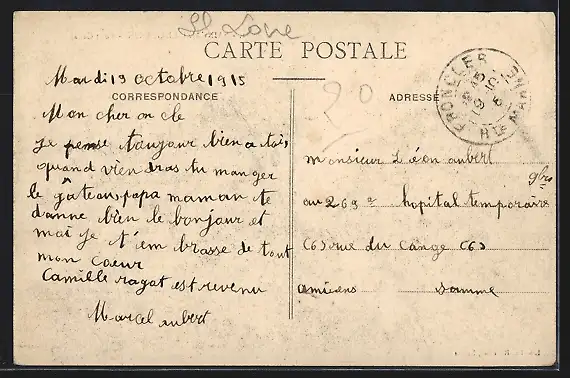 CARTE POSTALE
Mardi 19 octobre 1915
CORRESPONDANCE
ADRESSE
20
FRONCLES
Hte MARNE
Mon cher oncle
je pense toujour bien a toi,
quand viendras tu manger
le gâteau, papa maman te
donne bien le bonjour et
moi je t'em brasse de tout
mon coeur
Camille ragat est revenu
Marcel aubert
monsieur Léon aubert
au 269e hopital temporaire
(6) rue du Cange (6)
amiens somme